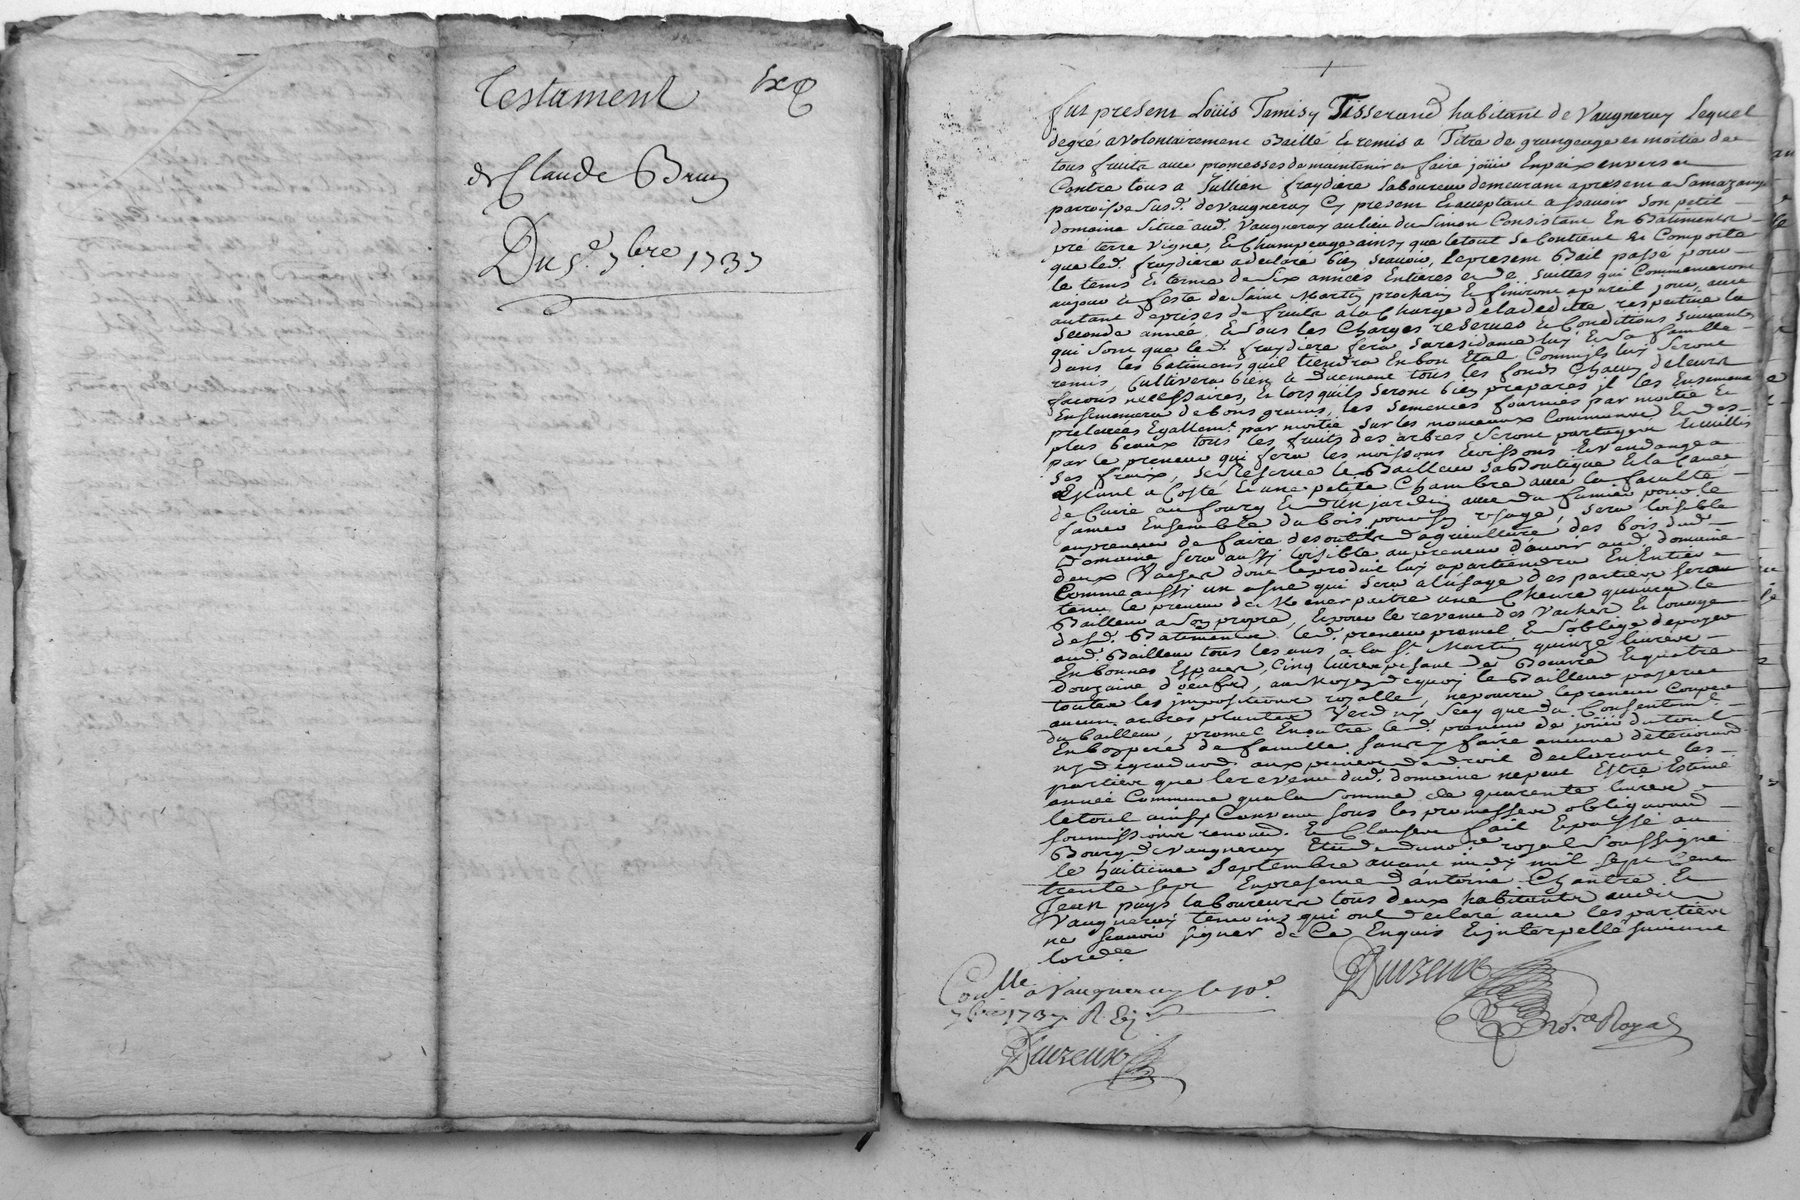 Testament
de Claude Brun
Du 5e 7bre 1737
fut present Loüis Tamisy Tisserand habitant de Vaugneray Lequel
de gré a volontairement Baillé & remis a Titre de grangeage et moitié de
tous fruits avec promesses de maintenir & faire joüir En paix envers et
Contre tous a Jullien fraydiere Laboureur demeurant a present a
parroisse Susd. de Vaugneray Cy present & acceptant a sçavoir Son petit
domaine Situé aud. Vaugneray au lieu du Simon Consistant En Batiments
pré terre vigne, & Champeage ainsy que le tout Se Contient & Comporte
que led. fraydiere a declaré bien Sçavoir, Le present Bail passé pour
le tems & terme de Six années Entieres et de Suittes qui Commenceront
au jour & feste de Saint Martin prochain & finiront a pareil jour, avec
autant de prises de fruits a la Charge de la deditte respective la
Seconde année, & Sous les Charges reserves & Conditions Suivantes
qui Sont que led. fraydiere fera Sa residance luy & Sa famille
dans les batimens qu'il tiendra En bon Etat Comm'ils luy Seront
remis, Cultivera bien & Duement tous les fonds Chacun de leurs
façons necessaires, & lors qu'ils Seront bien preparés il les Ensemencera
de bons grains, les Semences fournies par moitié &
prelevées Egallemt. par moitié Sur les monceaux Communs & des
plus beaux tous les fruits des arbres Seront partagés
par le preneur qui fera les moissons & vendanges a
Ses fraix, Se Reserve le Bailleur Sa Boutique & la Cave
Estant a Costé & une petite Chambre avec la faculté
de Cuire au fourg & d'un jardin avec du fumier pour le
fumer Ensemble du bois pour Son usage, Sera loisible
au preneur de faire des outils d'agriculture des bois dud.
Domaine Sera aussy loisible au preneur d'avoir aud. domaine
deux Vaches dont le produit luy apartiendra En Entier
Comme aussi un asne qui Sera a l'usage des parties Sera
tenu le preneur de Mener paitre une Chevre qu'aura le
Bailleur a Son propre, & pour le revenu des Vaches & louage
desd. Batiments led. preneur promet & S'oblige de payer
aud. Bailleur tous les ans a la St. Martin quinze livres
En bonnes Especes, Cinq livres pesant de Beurre & quatre
douzaine d'oeufs, au Moyen de quoy le Bailleur payera
toutes les impositions royalles, ne pourra le preneur Couper
aucun arbres plantés Verd ny Secq que du Consentemt.
du bailleur, promet En outre led. preneur de joüir du tout
En bon pere de famille Sans y faire aucune deterioraon
ny degradaon. aux peines de droit declarant les
parties que le revenu dud. domaine ne peut Estre Estimé
année Commune qu'a la Somme de quarente livres
le tout ainsy Convenu Sous les promesses obligaons
Soumissions renonaons. & Clauses fait & passé au
Bourg de Vaugneray Etude du nore. royal Soussigné
le huitieme Septembre avant midy mil Sept Cent
trente Sept En presence d'antoine Chantre &
Jean pays laboureurs tous deux habitants aud.
Vaugneray temoins qui ont declaré avec les parties
ne Sçavoir Signer de Ce Enquis & interpellé Suivant
lordce
Conllé a Vaugneray le 10e
7bre 1737 R.
Durieux
Nore. Royal